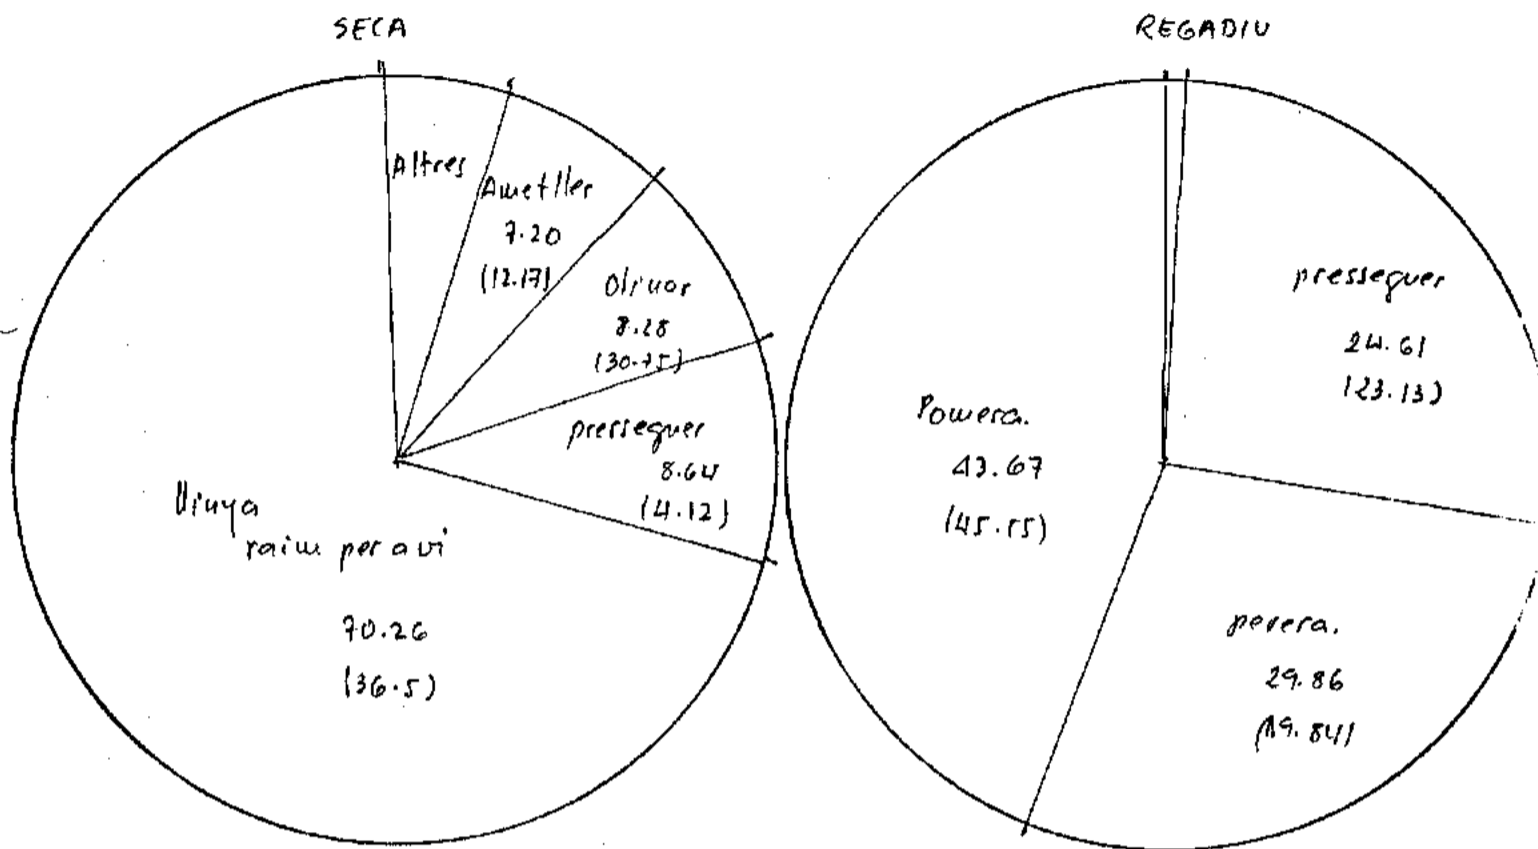 SECA
Altres
Ametller
7.20
(12.17)
Olivar
8.28
(30.75)
presseguer
8.64
(4.12)
Vinya
raim per a vi
70.26
(36.5)
REGADIU
presseguer
24.61
(23.13)
Pomera.
43.67
(45.55)
perera.
29.86
(19.84)